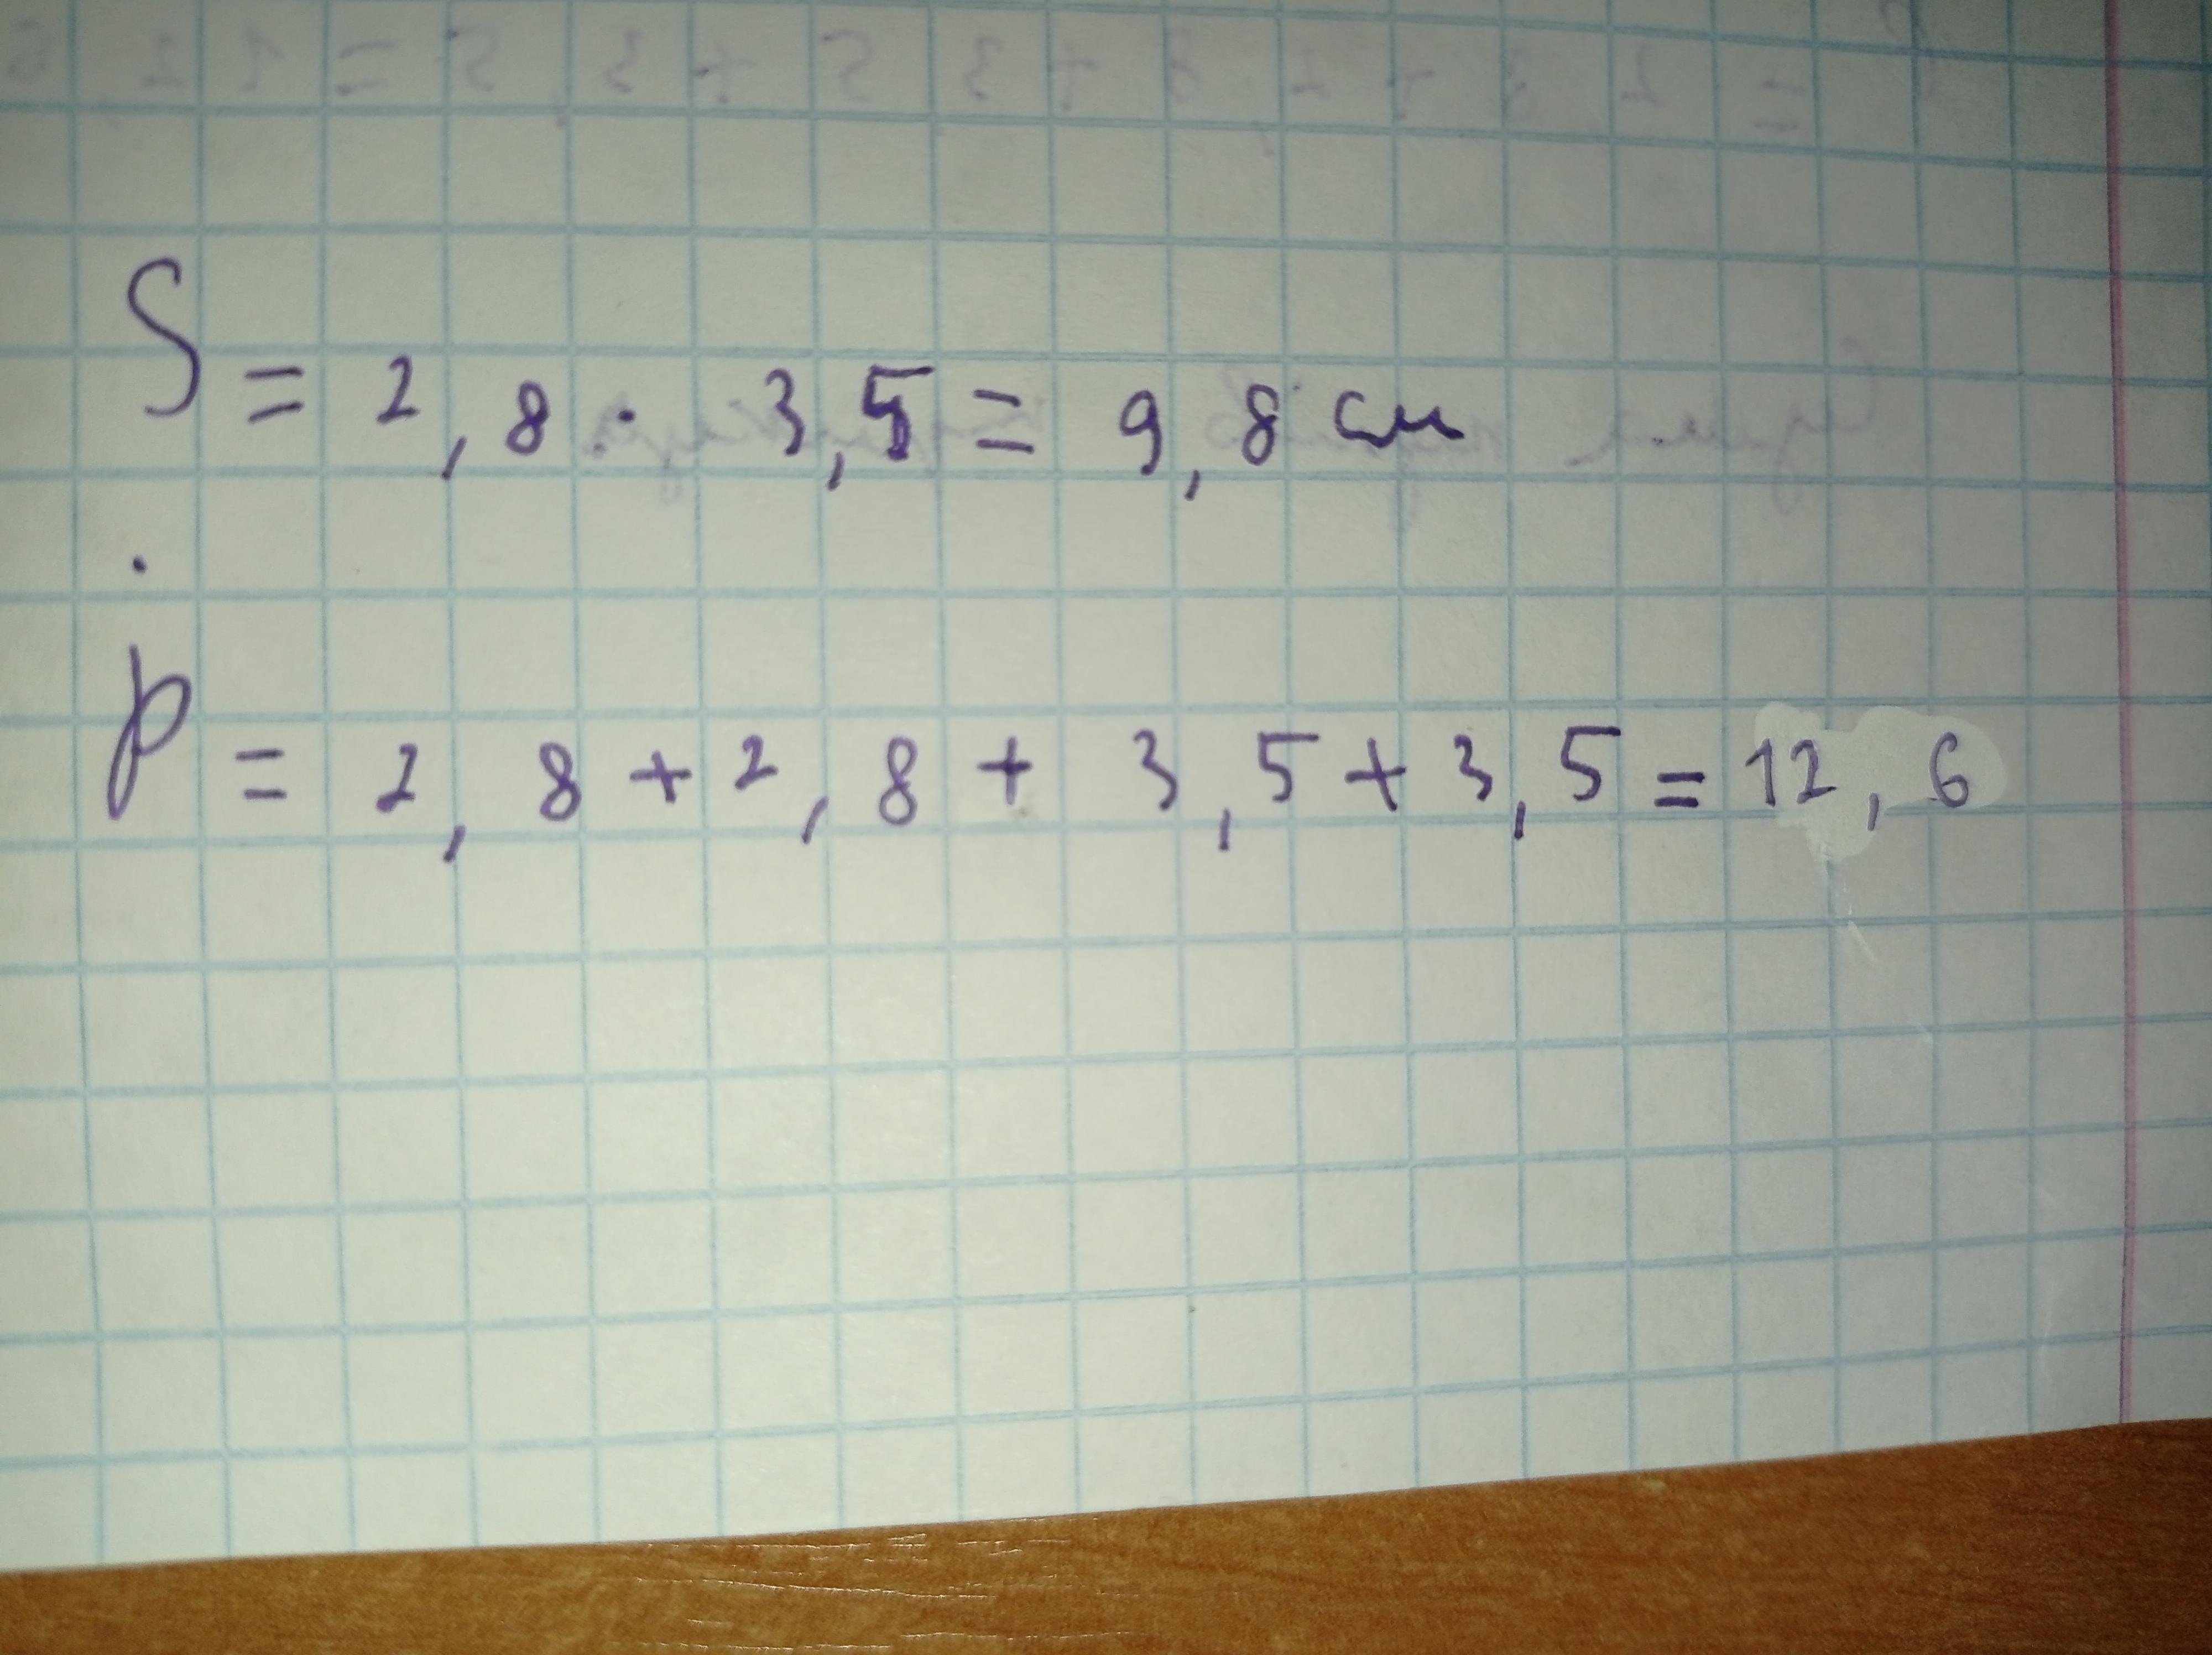 S = 2,8 · 3,5 = 9,8 см
p = 2,8 + 2,8 + 3,5 + 3,5 = 12,6